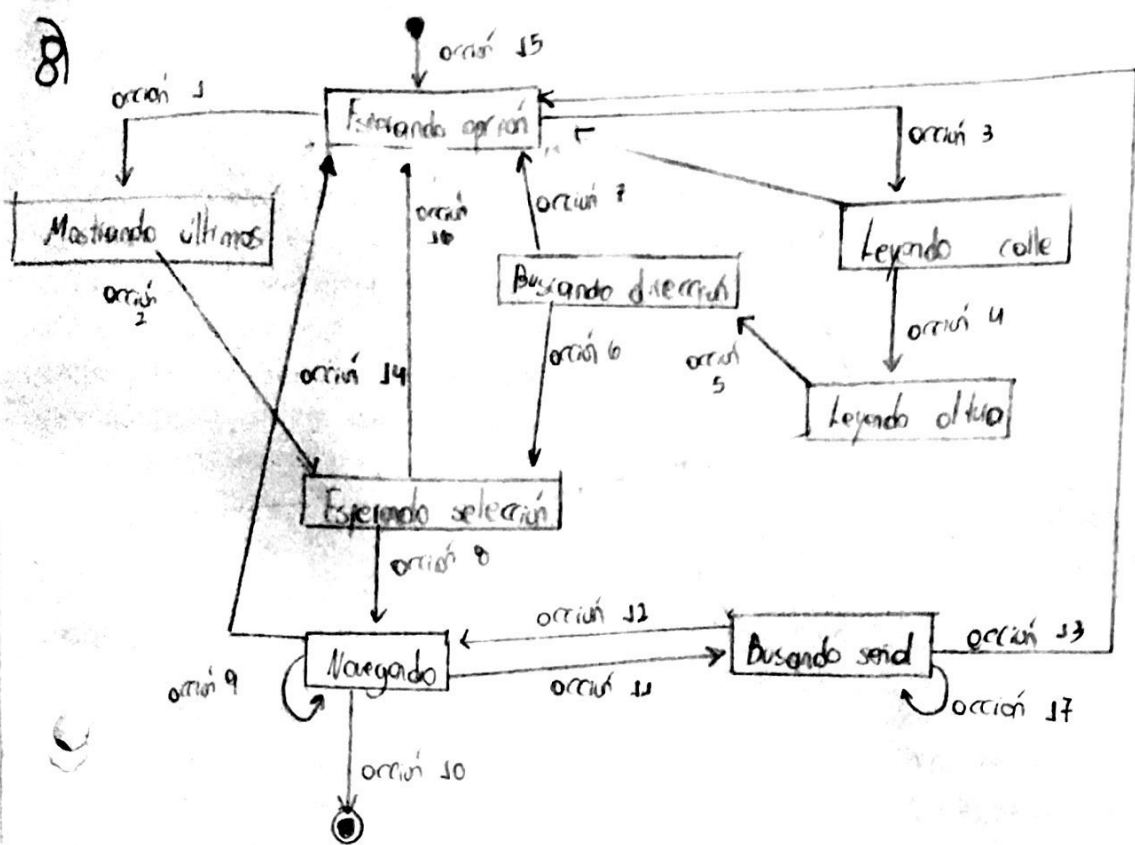 8)
acción 15
acción 1
Esperando opción
acción 3
Mostrando últimos
acción
16
acción 7
Leyendo calle
acción
2
Buscando dirección
acción 4
acción 14
acción 6
acción
5
Leyendo altura
Esperando selección
acción 8
acción 12
Navegando
Buscando señal
acción 13
acción 9
acción 11
acción 17
acción 10